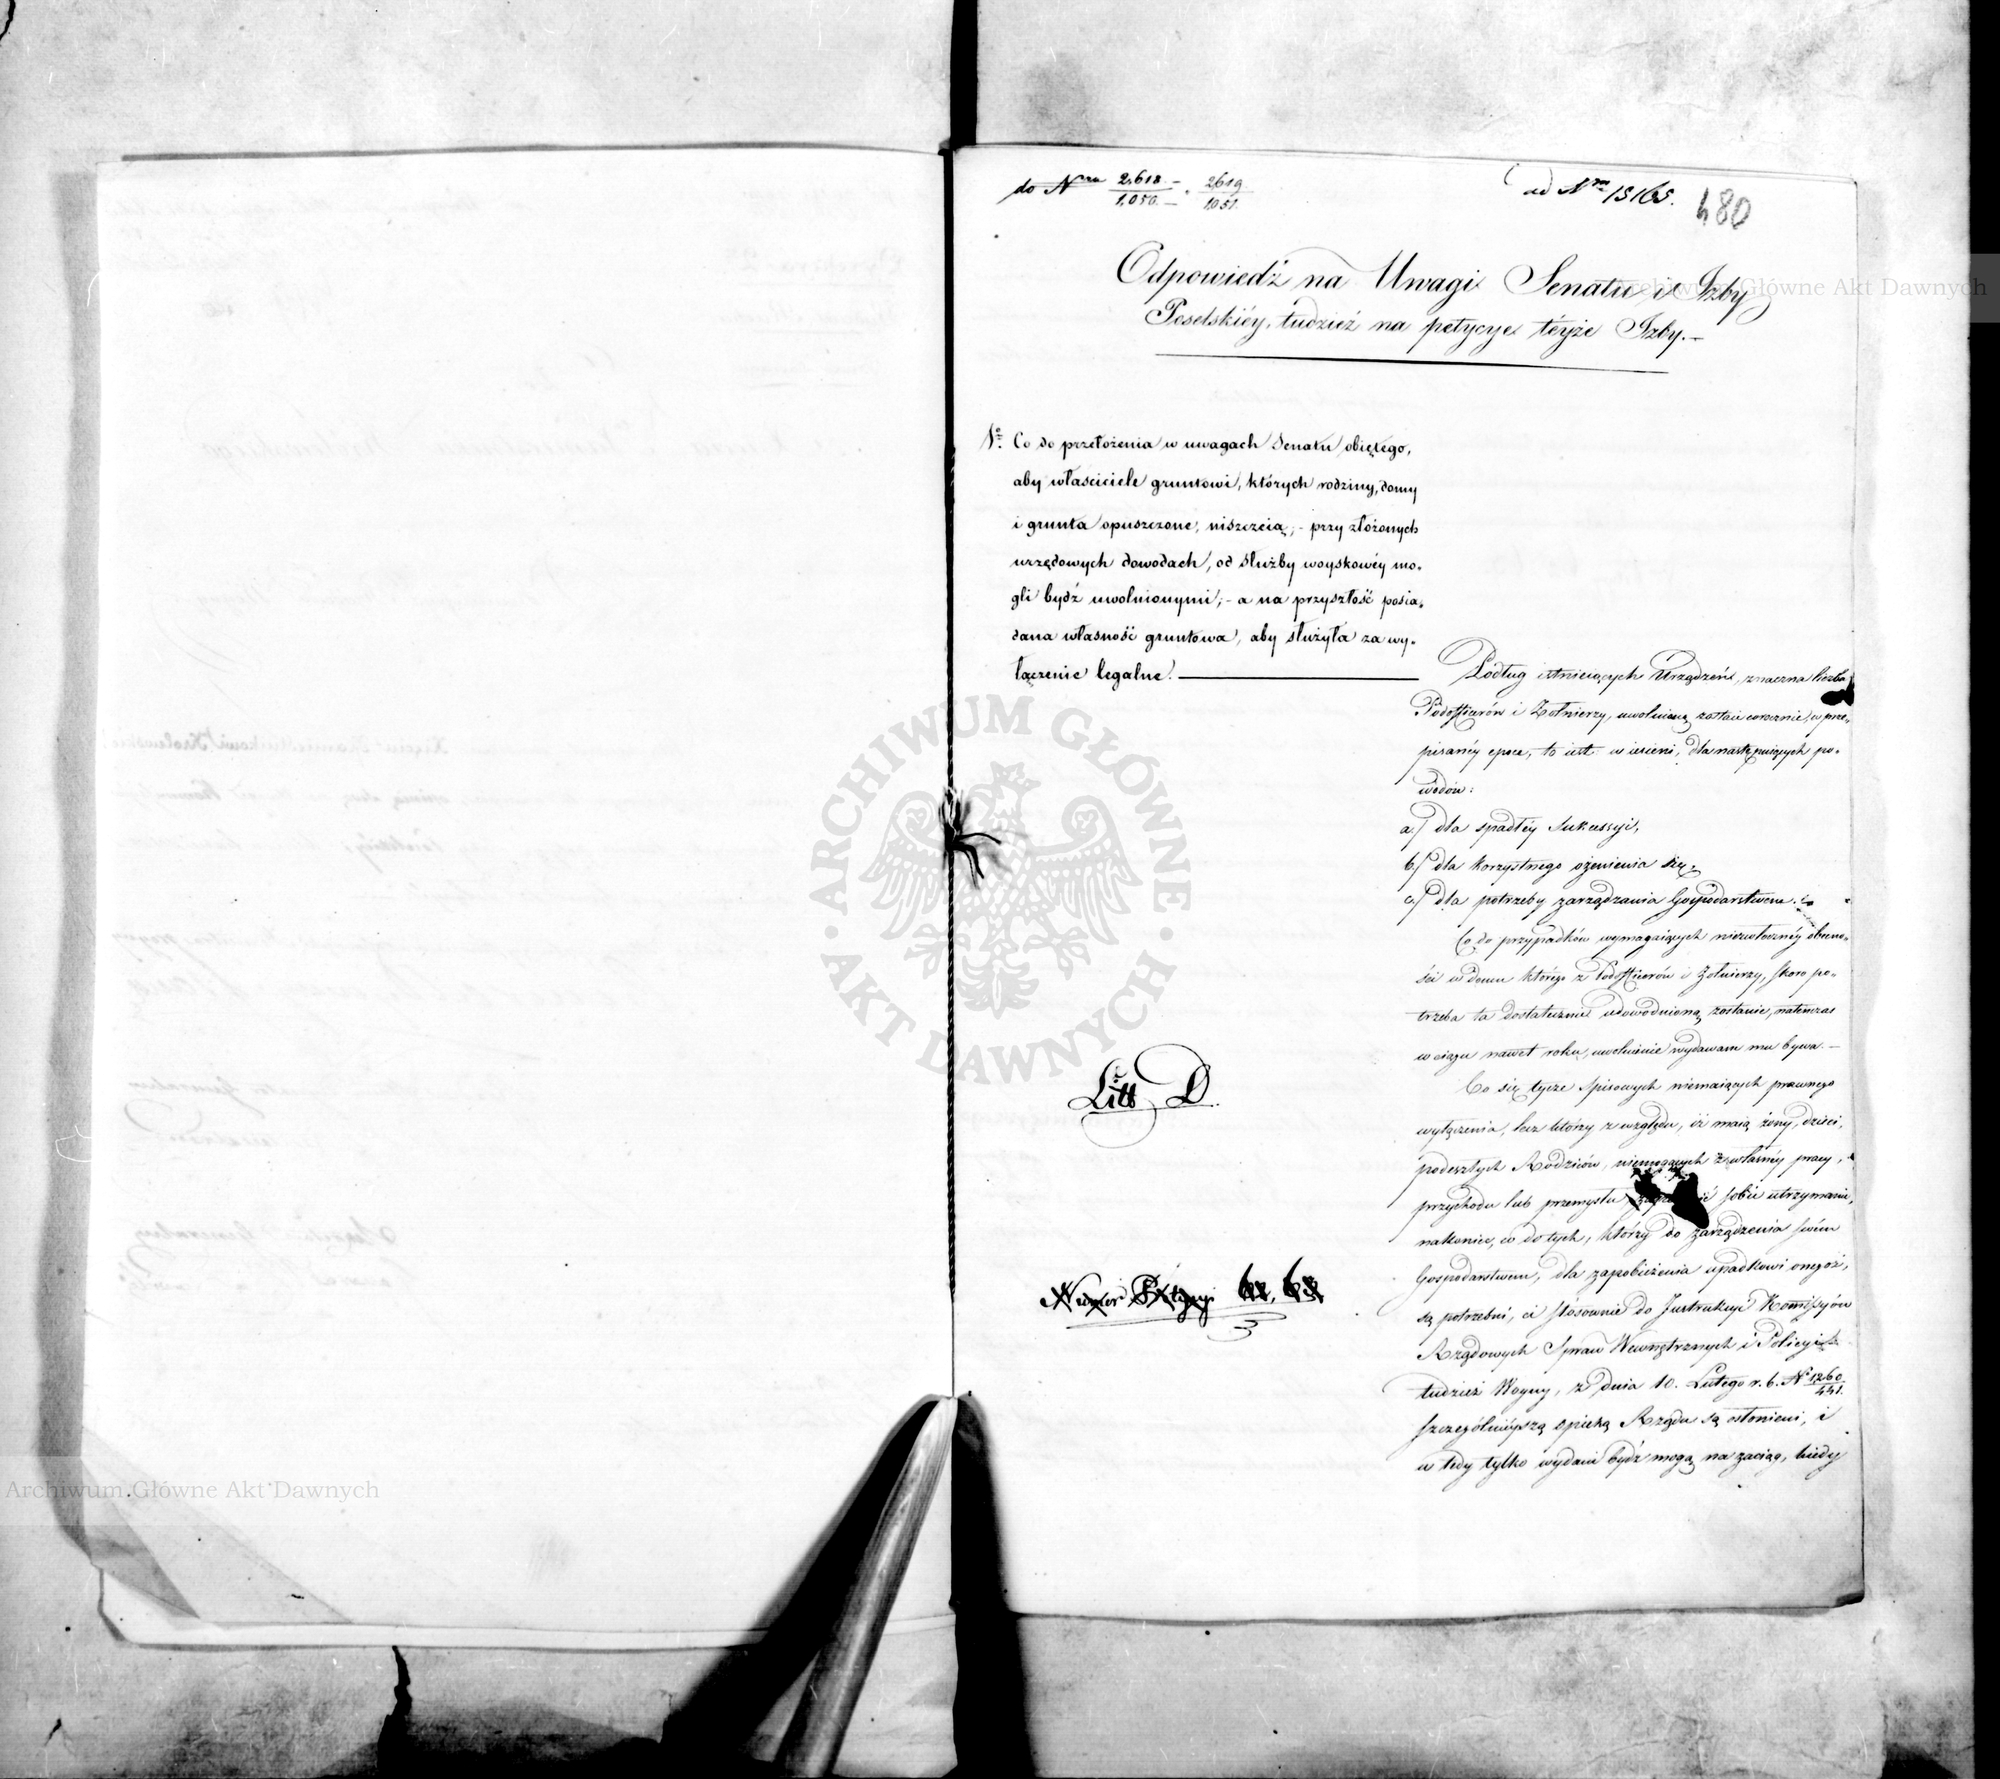 do Nru 2,618.- / 1,050.- . 2619 / 1051.
ad Nrm 15165.
480
Odpowiedź na Uwagi Senatu i Izby
Poselskiéy, tudzież na petycye téyże Izby.-
Nº. Co do przełożenia w uwagach Senatu obiętego,
aby właściciele gruntowi, których rodziny, domy
i grunta opuszczone, niszczeią; - przy złożonych
urzędowych dowodach, od służby woyskowéy mo-
gli bydź uwolnionymi; - a na przyszłość posia-
dana własność gruntowa, aby służyła za wy-
łączenie legalne.
Podług istnieiących Urządzeń, znaczna liczba
Podofficerów i Żołnierzy, uwolnioną zostaie corocznie, w prze-
pisanéy epoce, to iest: w iesieni, dla następuiących po-
wodów:
a.) dla spadłéy Sukcessyi,
b.) dla korzystnego ożenienia się,
c.) dla potrzeby zarządzania Gospodarstwem.
Co do przypadków wymagaiących niezwłocznéy obecno-
ści w domu którego z Podofficerów i Żołnierzy, skoro po-
trzeba ta dostatecznie udowodnioną zostanie, natenczas
w ciągu nawet roku, uwolnienie wydawam mu bywa. -
Co się tycze Spisowych niemaiących prawnego
wyłączenia, lecz którzy z względu, iż maią żony, dzieci,
podeszłych Rodziców, niemogących z własnéy pracy,
przychodu lub przemysłu sobie utrzymanie,
nakoniec, co do tych, którzy do zarządzenia swém
Gospodarstwem, dla zapobieżenia upadkowi onegoż,
są potrzebni, ci stósownie do Instrukcyi Kommissyów
Rządowych Spraw Wewnętrznych i Policyi
tudzież Woyny, z dnia 10. Lutego r. b. Nº 1260 / 441.
szczególnieyszą opieką Rządu są osłonieni, i
w tedy tylko wydani bydź mogą na zaciąg, kiedy
Litt D.
Numer Petycyi 62, 63
ARCHIWUM GŁÓWNE · AKT DAWNYCH ·
Archiwum Główne Akt Dawnych
Archiwum Główne Akt Dawnych